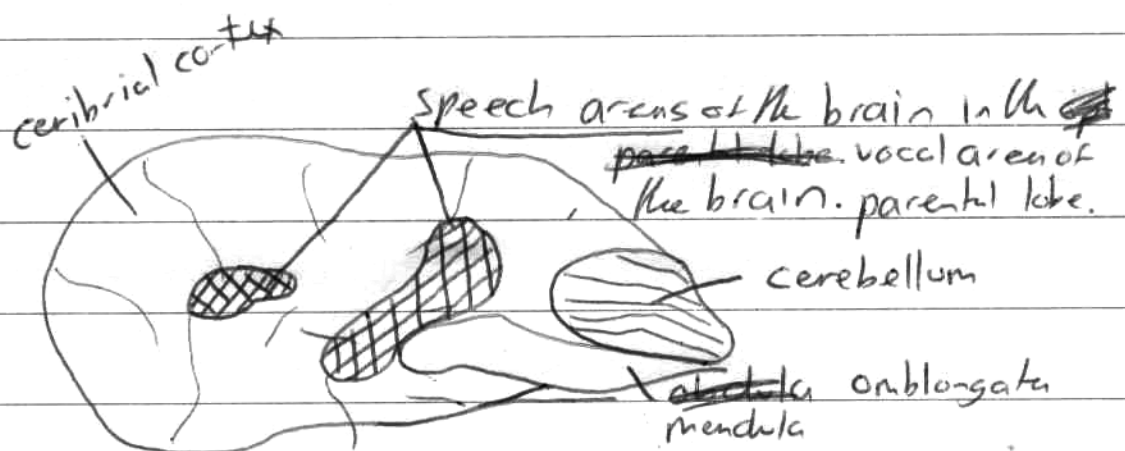 ceribrial cortex
speech areas of the brain in the
vocal area of
the brain. parental lobe.
cerebellum
omblongata
mendula